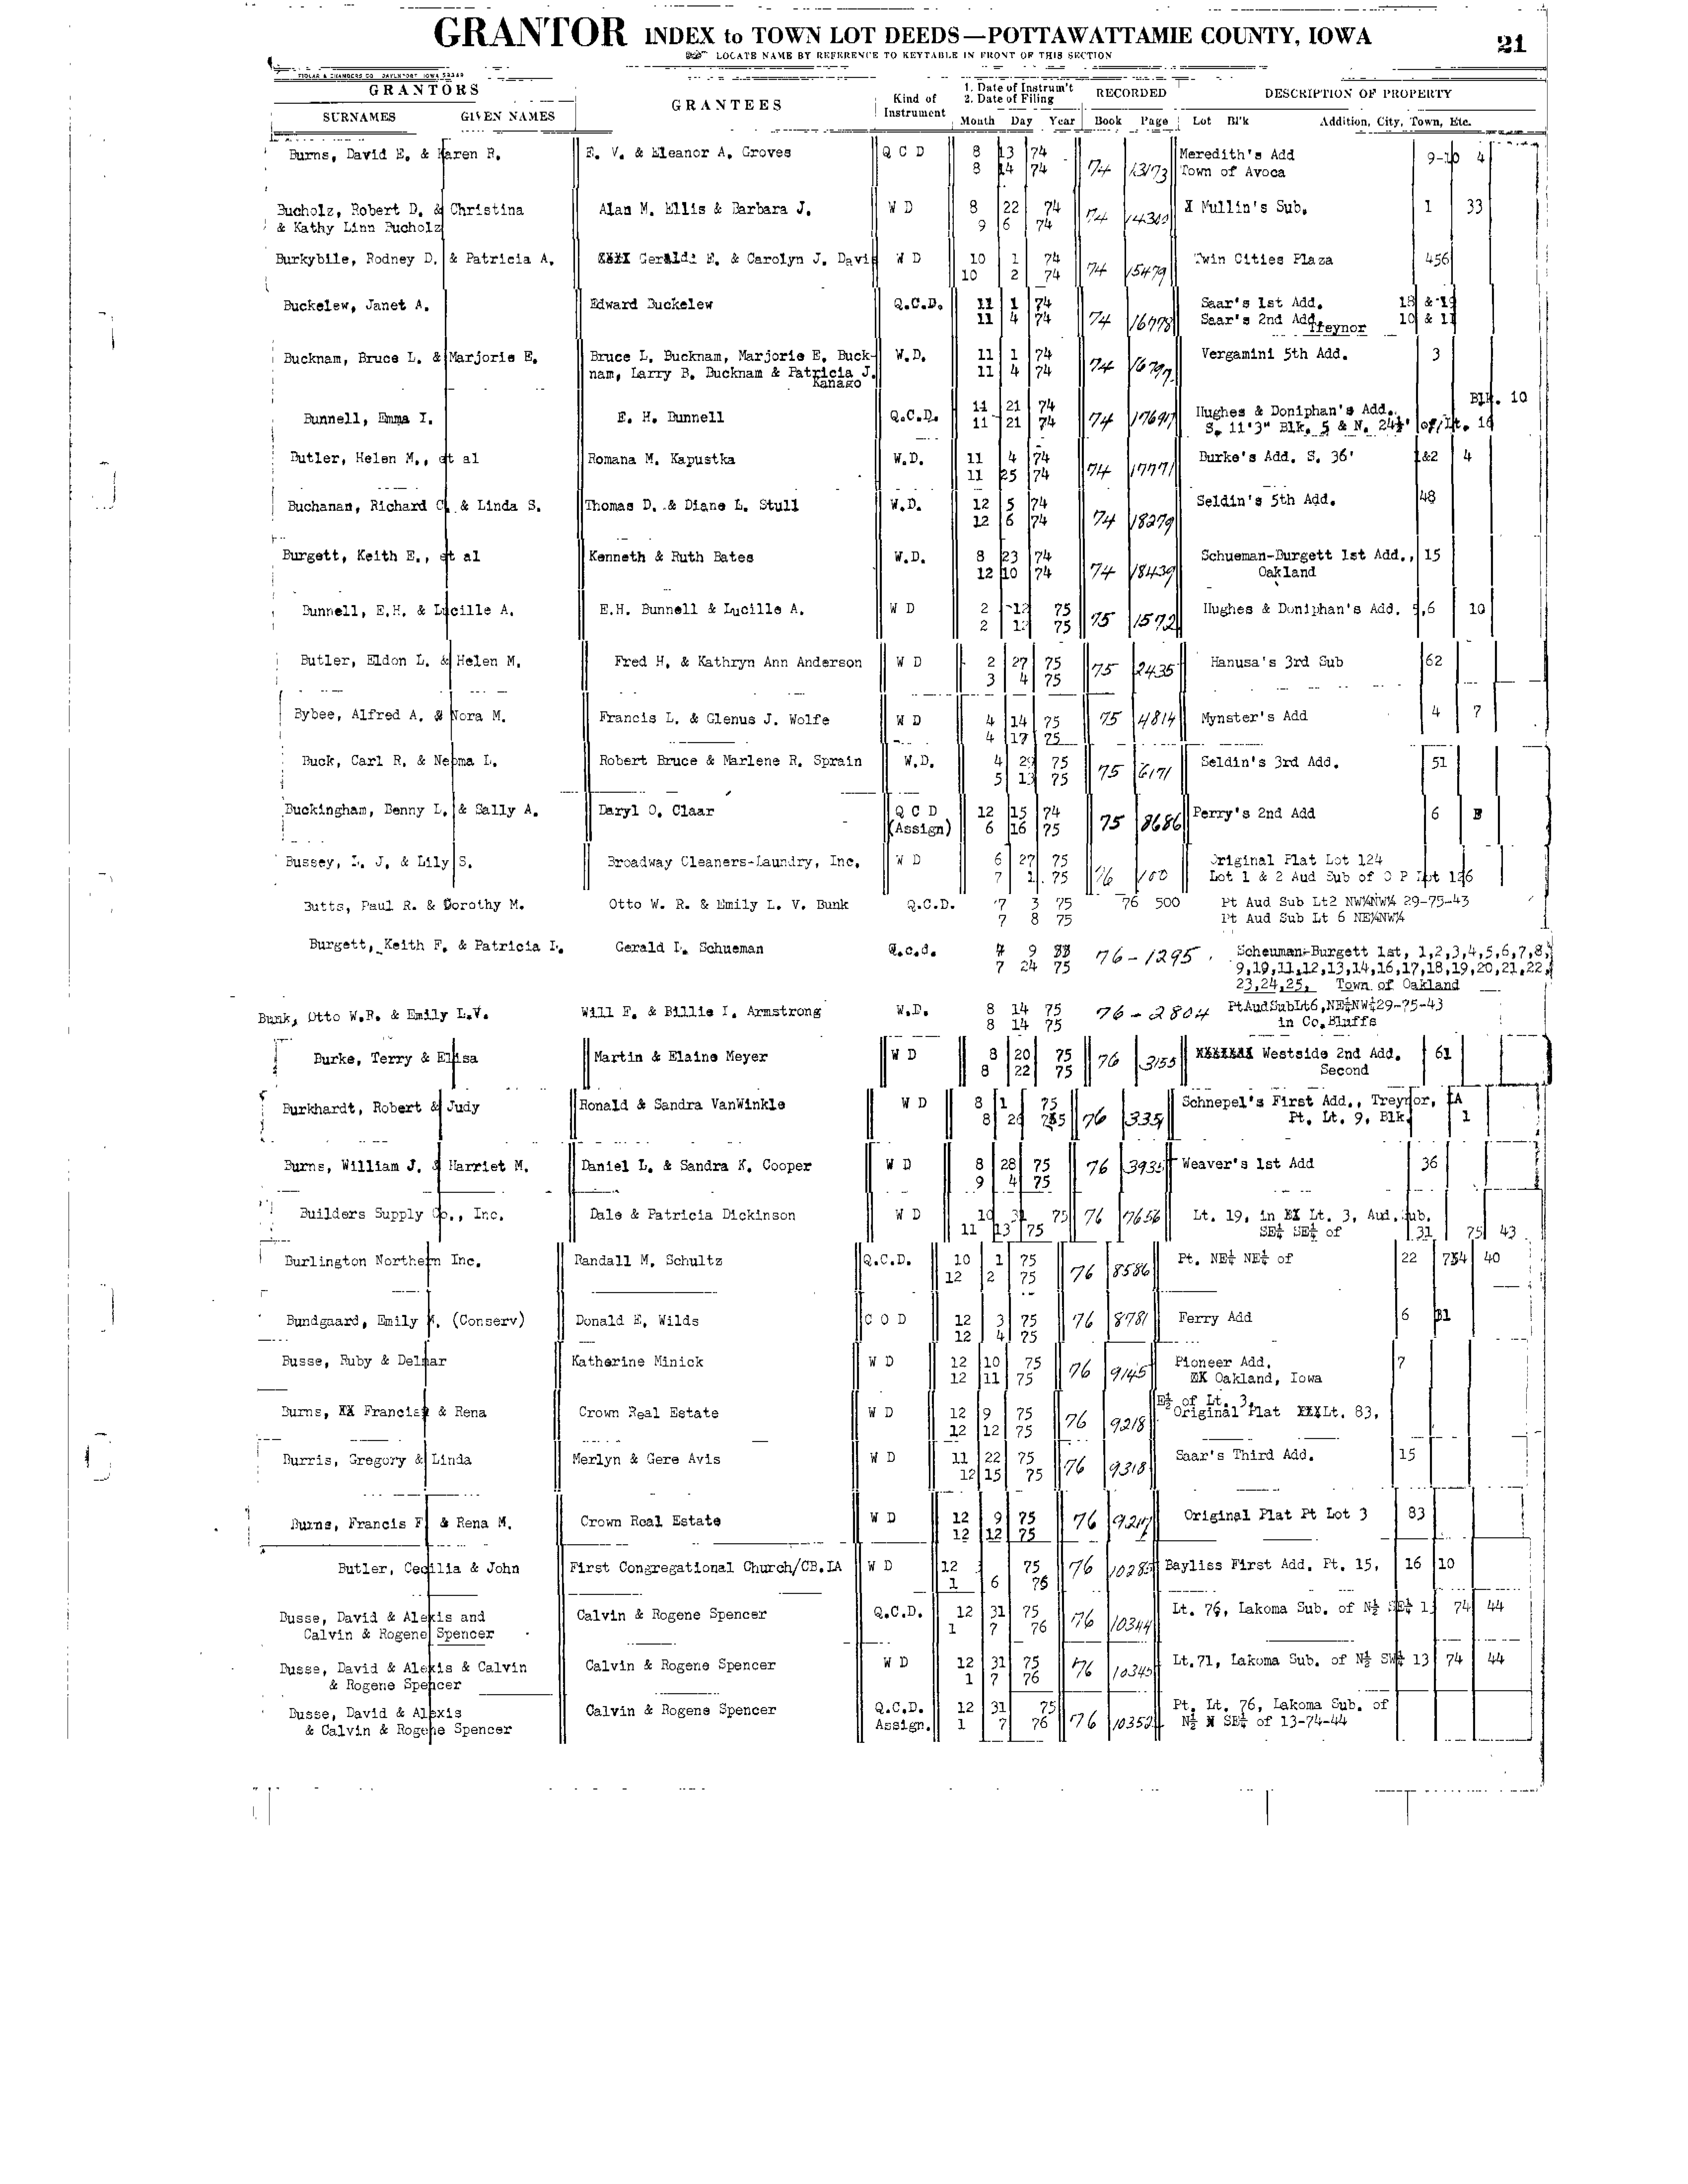 GRANTOR INDEX to TOWN LOT DEEDS—POTTAWATTAMIE COUNTY, IOWA 21
LOCATE NAME BY REFERENCE TO KEYTABLE IN FRONT OF THIS SECTION
GRANTORS GRANTEES Kind of Instrument 1. Date of Instrum't 2. Date of Filing RECORDED DESCRIPTION OF PROPERTY
SURNAMES GIVEN NAMES Month Day Year Book Page Lot Bl'k Addition, City, Town, Etc.
Burns, David E. & Karen R. E. V. & Eleanor A. Groves Q C D 8 13 74 74 13173 Meredith's Add 9-10 4
8 14 74 Town of Avoca
Bucholz, Robert D. & Christina Alan M. Ellis & Barbara J. W D 8 22 74 74 X Mullin's Sub. 1 33
& Kathy Linn Bucholz 9 6 74
Burkybile, Rodney D. & Patricia A. XXXX Gerald E. & Carolyn J. Davi W D 10 1 74 74 15479 Twin Cities Plaza 456
10 2 74
Buckelew, Janet A. Edward Buckelew Q.C.D. 11 1 74 74 16778 Saar's 1st Add. 18 & 19
11 4 74 Saar's 2nd Add. Treynor 10 & 11
Bucknam, Bruce L. & Marjorie E. Bruce L. Bucknam, Marjorie E. Buck- W.D. 11 1 74 74 16797 Vergamini 5th Add. 3
nam, Larry B. Bucknam & Patricia J. 11 4 74
Kanago
Blk. 10
Bunnell, Emma I. E. H. Bunnell Q.C.D. 11 21 74 74 17691 Hughes & Doniphan's Add.
11 21 74 S. 11'3" Blk. 5 & N. 24½' of Lt. 16
Butler, Helen M., et al Romana M. Kapustka W.D. 11 4 74 74 17771 Burke's Add. S. 36' 1&2 4
11 25 74
Buchanan, Richard C. & Linda S. Thomas D. & Diane L. Stull W.D. 12 5 74 74 18279 Seldin's 5th Add. 48
12 6 74
Burgett, Keith E., et al Kenneth & Ruth Bates W.D. 8 23 74 74 18439 Schueman-Burgett 1st Add., 15
12 10 74 Oakland
Bunnell, E.H. & Lucille A. E.H. Bunnell & Lucille A. W D 2 12 75 75 1572 Hughes & Doniphan's Add. 5,6 10
2 12 75
Butler, Eldon L. & Helen M. Fred H. & Kathryn Ann Anderson W D 2 27 75 75 2435 Hanusa's 3rd Sub 62
3 4 75
Bybee, Alfred A. & Nora M. Francis L. & Glenus J. Wolfe W D 4 14 75 75 4814 Mynster's Add 4 7
4 17 75
Buck, Carl R. & Neoma L. Robert Bruce & Marlene R. Sprain W.D. 4 29 75 75 6171 Seldin's 3rd Add. 51
5 13 75
Buckingham, Benny L. & Sally A. Daryl O. Claar Q C D 12 15 74 75 8686 Perry's 2nd Add 6 B
(Assign) 6 16 75
Bussey, L. J. & Lily S. Broadway Cleaners-Laundry, Inc. W D 6 27 75 76 100 Original Plat Lot 124
7 1 75 Lot 1 & 2 Aud Sub of O P Lot 126
Butts, Paul R. & Dorothy M. Otto W. R. & Emily L. V. Bunk Q.C.D. 7 3 75 76 500 Pt Aud Sub Lt2 NW¼NW¼ 29-75-43
7 8 75 Pt Aud Sub Lt 6 NE¼NW¼
Burgett, Keith F. & Patricia L. Gerald L. Schueman Q.c.d. 7 9 76-1295 Scheuman-Burgett 1st, 1,2,3,4,5,6,7,8,
7 24 75 9,10,11,12,13,14,16,17,18,19,20,21,22,
23,24,25, Town of Oakland
Bunk, Otto W.R. & Emily L.V. Will F. & Billie I. Armstrong W.D. 8 14 75 76-2804 PtAudSubLt6,NE¼NW¼29-75-43
8 14 75 in Co.Bluffs
Burke, Terry & Elisa Martin & Elaine Meyer W D 8 20 75 76 3155 XXXXXXX Westside 2nd Add. 61
8 22 75 Second
Burkhardt, Robert & Judy Ronald & Sandra VanWinkle W D 8 1 75 76 3351 Schnepel's First Add., Treynor, IA
8 26 75 Pt. Lt. 9, Blk. 1
Burns, William J. & Harriet M. Daniel L. & Sandra K. Cooper W D 8 28 75 76 3935 Weaver's 1st Add 36
9 4 75
Builders Supply Co., Inc. Dale & Patricia Dickinson W D 10 31 75 76 7656 Lt. 19, in EX Lt. 3, Aud. Sub.
11 13 75 SE¼ SE¼ of 31 75 43
Burlington Northern Inc. Randall M. Schultz Q.C.D. 10 1 75 76 8586 Pt. NE¼ NE¼ of 22 754 40
12 2 75
Bundgaard, Emily K. (Conserv) Donald E. Wilds C O D 12 3 75 76 8781 Ferry Add 6 31
12 4 75
Busse, Ruby & Delmar Katherine Minick W D 12 10 75 76 9145 Pioneer Add. 7
12 11 75 XX Oakland, Iowa
E½ of Lt. 3,
Burns, XX Francis & Rena Crown Real Estate W D 12 9 75 76 9218 Original Plat XXXLt. 83,
12 12 75
Burris, Gregory & Linda Merlyn & Gere Avis W D 11 22 75 76 9318 Saar's Third Add. 15
12 15 75
Burns, Francis F. & Rena M. Crown Real Estate W D 12 9 75 76 9217 Original Plat Pt Lot 3 83
12 12 75
Butler, Cecilia & John First Congregational Church/CB.IA W D 12 75 76 10285 Bayliss First Add. Pt. 15, 16 10
1 6 76
Busse, David & Alexis and Calvin & Rogene Spencer Q.C.D. 12 31 75 76 10344 Lt. 76, Lakoma Sub. of N½ SE¼ 13 74 44
Calvin & Rogene Spencer 1 7 76
Busse, David & Alexis & Calvin Calvin & Rogene Spencer W D 12 31 75 76 10345 Lt.71, Lakoma Sub. of N½ SW¼ 13 74 44
& Rogene Spencer 1 7 76
Busse, David & Alexis Calvin & Rogene Spencer Q.C.D. 12 31 75 76 10352 Pt. Lt. 76, Lakoma Sub. of
& Calvin & Rogene Spencer Assign. 1 7 76 N½ X SE¼ of 13-74-44